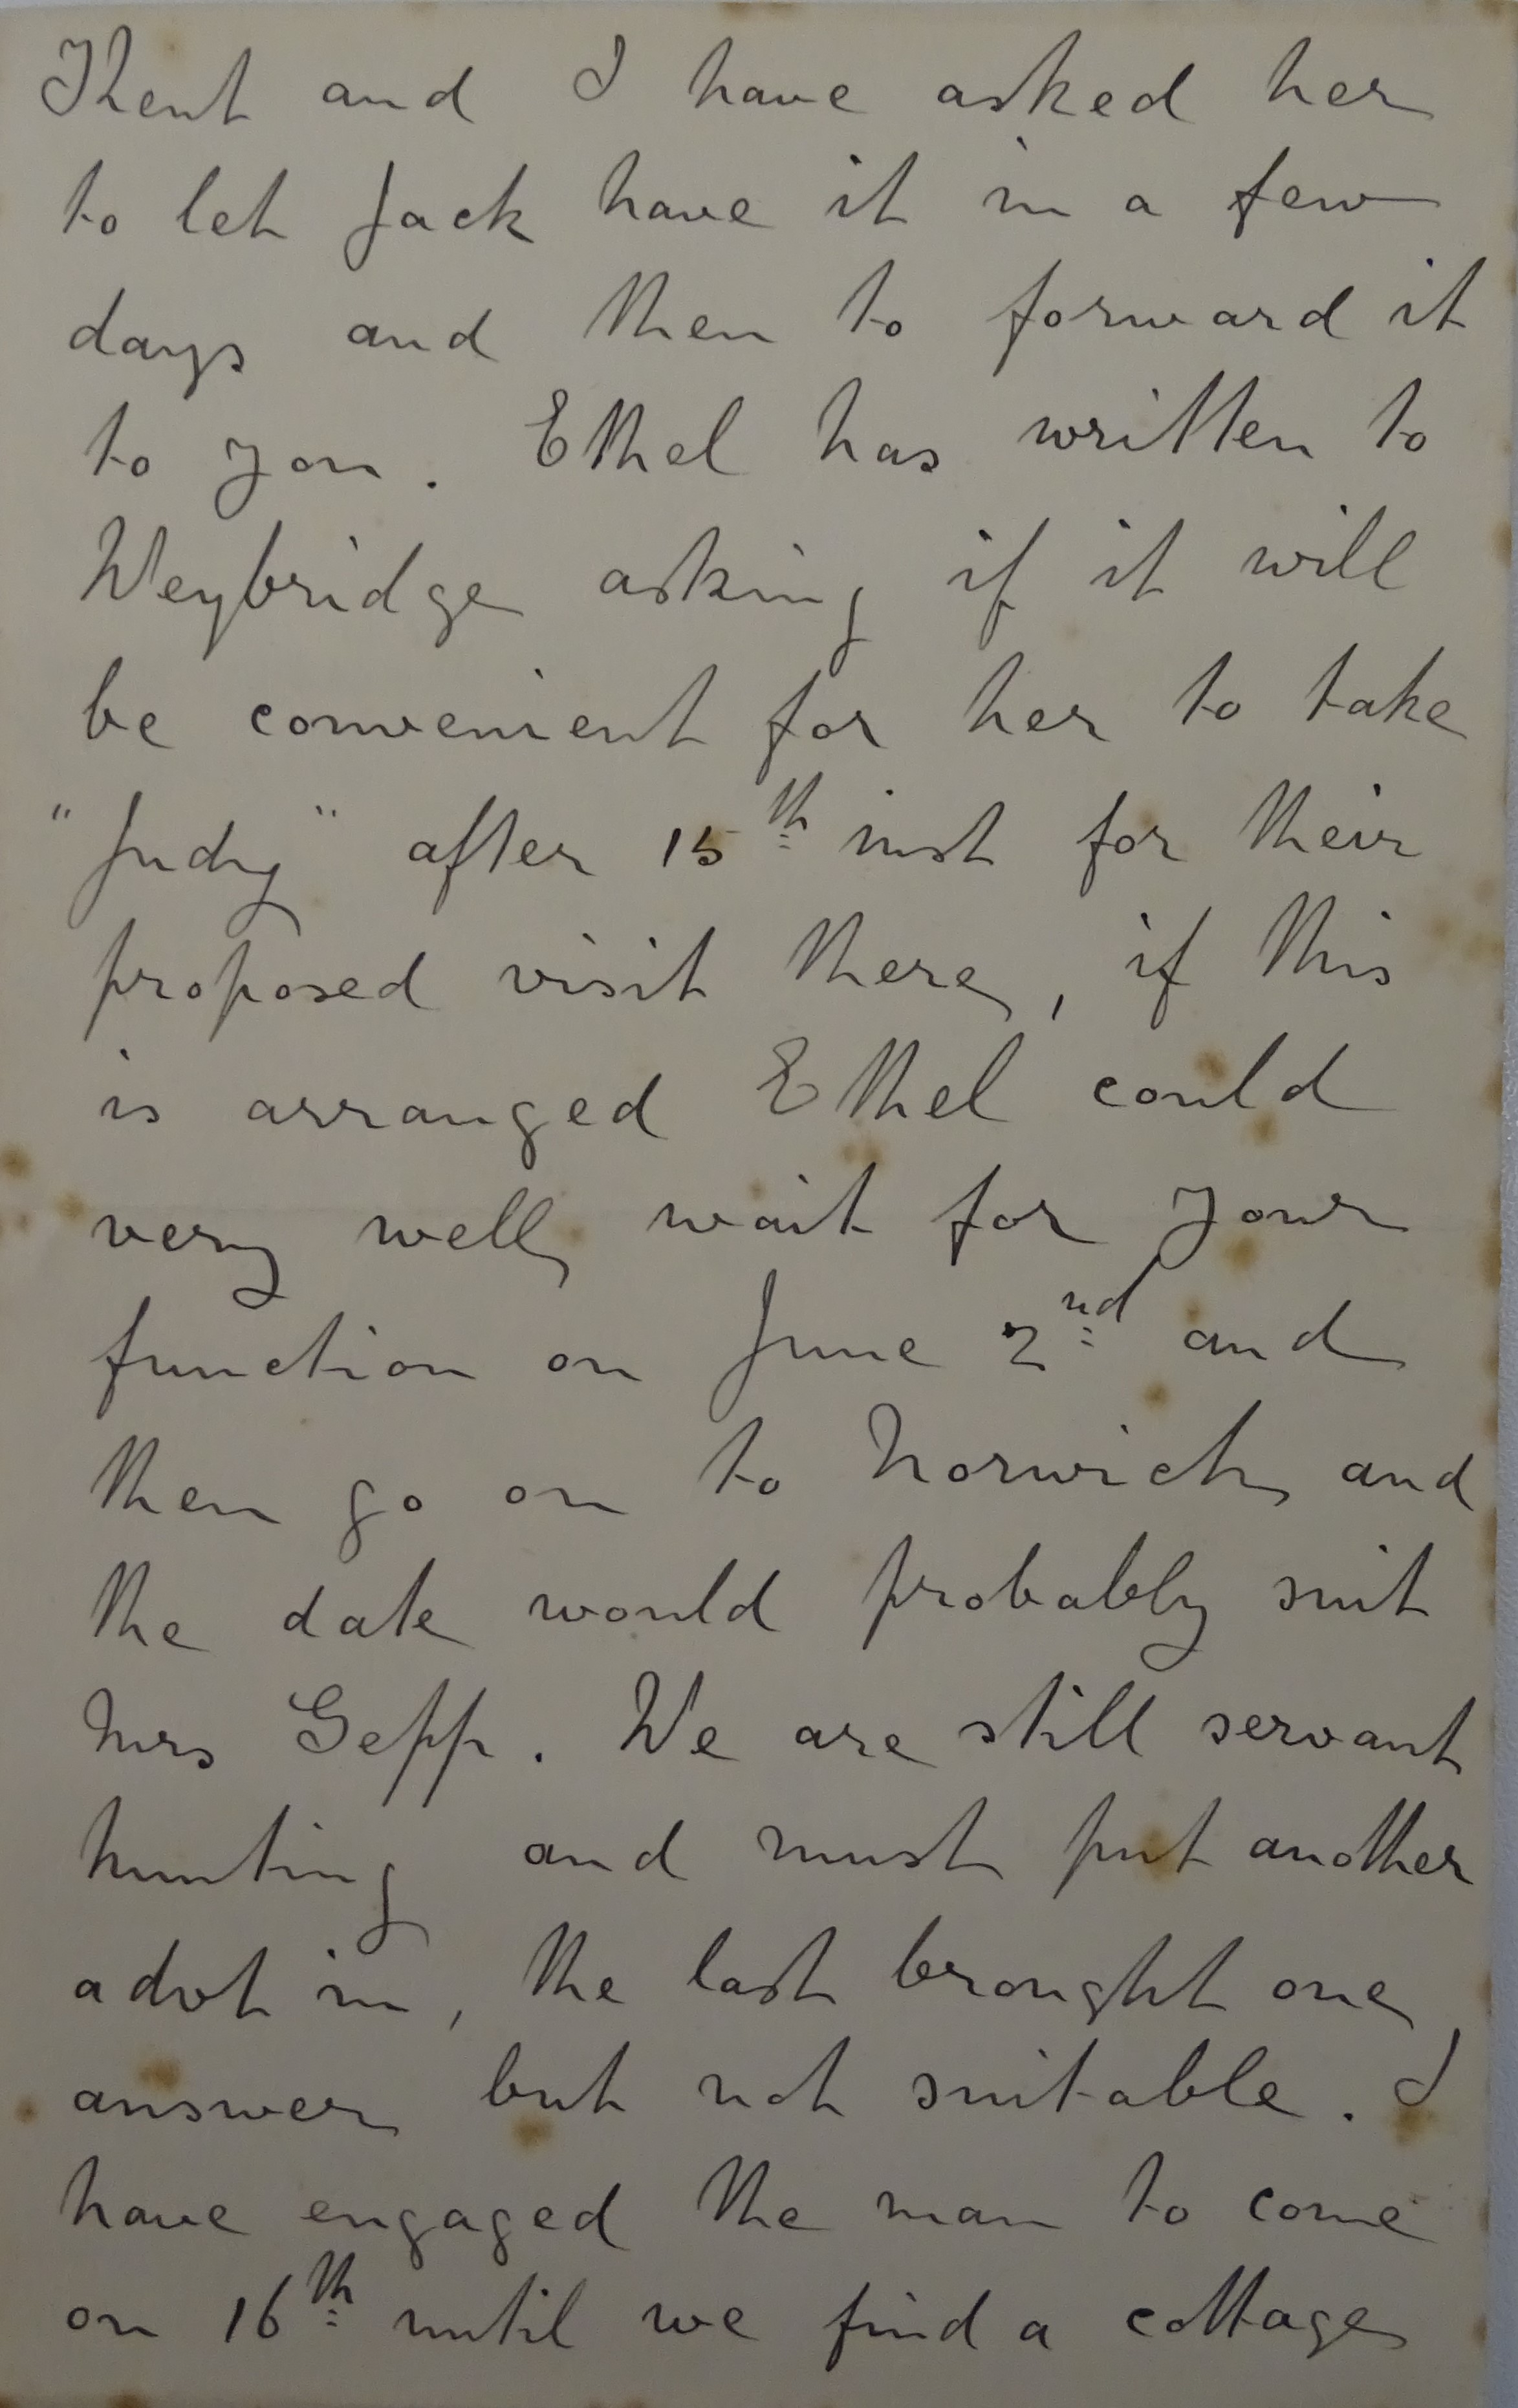 Kent and I have asked her
to let Jack have it in a few
days and then to forward it
to you. Ethel has written to
Weybridge asking if it will
be convenient for her to take
"Judy" after 15th inst for their
proposed visit there, if this
is arranged Ethel could
very well wait for your
function on June 2nd and
then go on to Norwich and
the date would probably suit
Mrs Gepp. We are still servant
hunting and must put another
advt in, the last brought one
answer but not suitable. I
have engaged the man to come
on 16th until we find a cottage